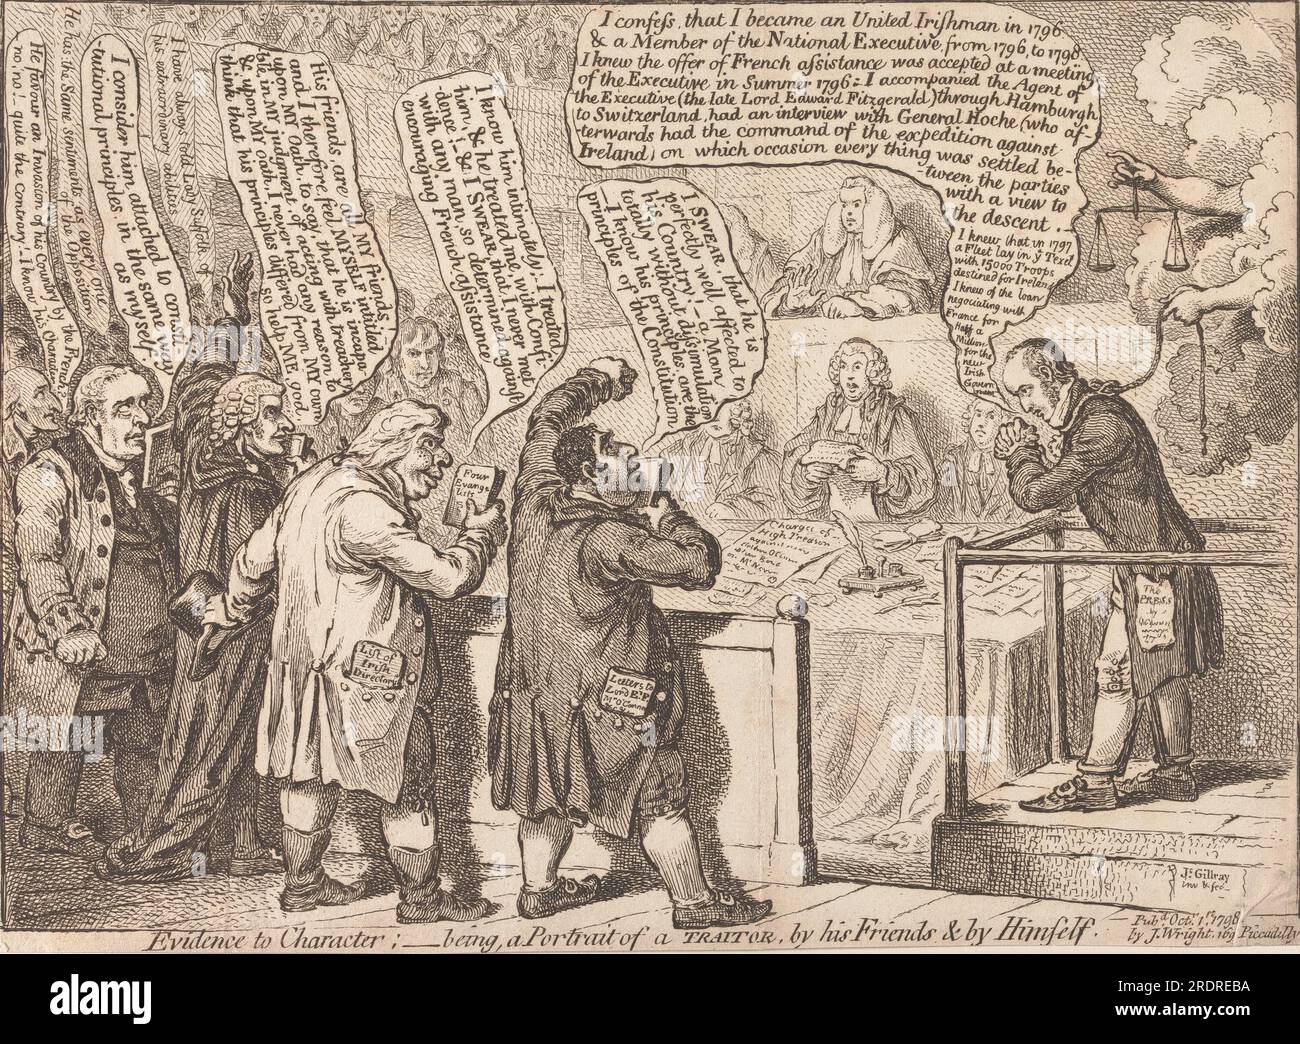 He favour an Invasion of his Country by the French
no, no! quite the contrary. I know his Character
He has the Same sentiments as every one
of the Opposition
I consider him attached to consti
-tutional principles, in the same way
as myself
I have always told Lady Suffolk of
his extraordinary abilities
His friends, are all MY friends,
and I therefore, feel MYSELF intitled
upon MY Oath, to say, that he is incapa
-ble, in MY judgment, of acting with treachery
& upon MY Oath, I never had any reason to
think that his principles differed from MY own
so help ME, god.
I know him intimately, I treated
him, & he treated me, with Confi-
-dence! & I SWEAR, that I never met
with any man, so determined against
encouraging French assistance
I SWEAR, that he is
perfectly well affected to
his Country! a Man
totally without dissimulation
I know his principles, are the
principles of the Constitution
I confess, that I became an United Irishman in 1796
& a Member of the National Executive, from 1796, to 1798
I knew the offer of French assistance was accepted at a meeting
of the Executive in Summer 1796: I accompanied the Agent of
the Executive (the late Lord Edward Fitzgerald) through Hamburgh
to Switzerland, had an interview with General Hoche (who af-
-terwards had the command of the expedition against
Ireland) on which occasion every thing was settled be-
-tween the parties
with a view to
the descent.
I knew that in 1797
a Fleet lay in ye Texel
with 15000 Troops
destined for Ireland
I knew of the loan
negociating with
France for
Half a
Million
for the
new
Irish
Govern
-ment
Four
Evange
lists
Lyst of
Irish
Directory
Letters to
Lord
Charges of
high Treason
against
The
PRESS
by
Js Gillray
inv & fec
Evidence to Character; — being, a Portrait of a TRAITOR, by his Friends & by Himself.
Pubd Octr 1st 1798
by J. Wright, 169 Piccadilly
alamy
Image ID: 2RDREBA
www.alamy.com